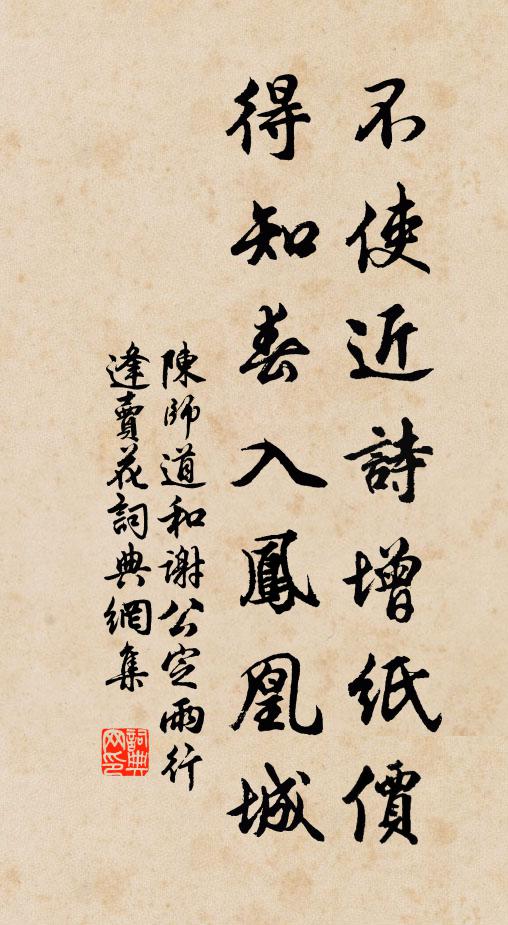 不使近詩增紙價
得知春入鳳凰城
陳師道和謝公定雨行
逢賣花詞典網集
詞典
网印